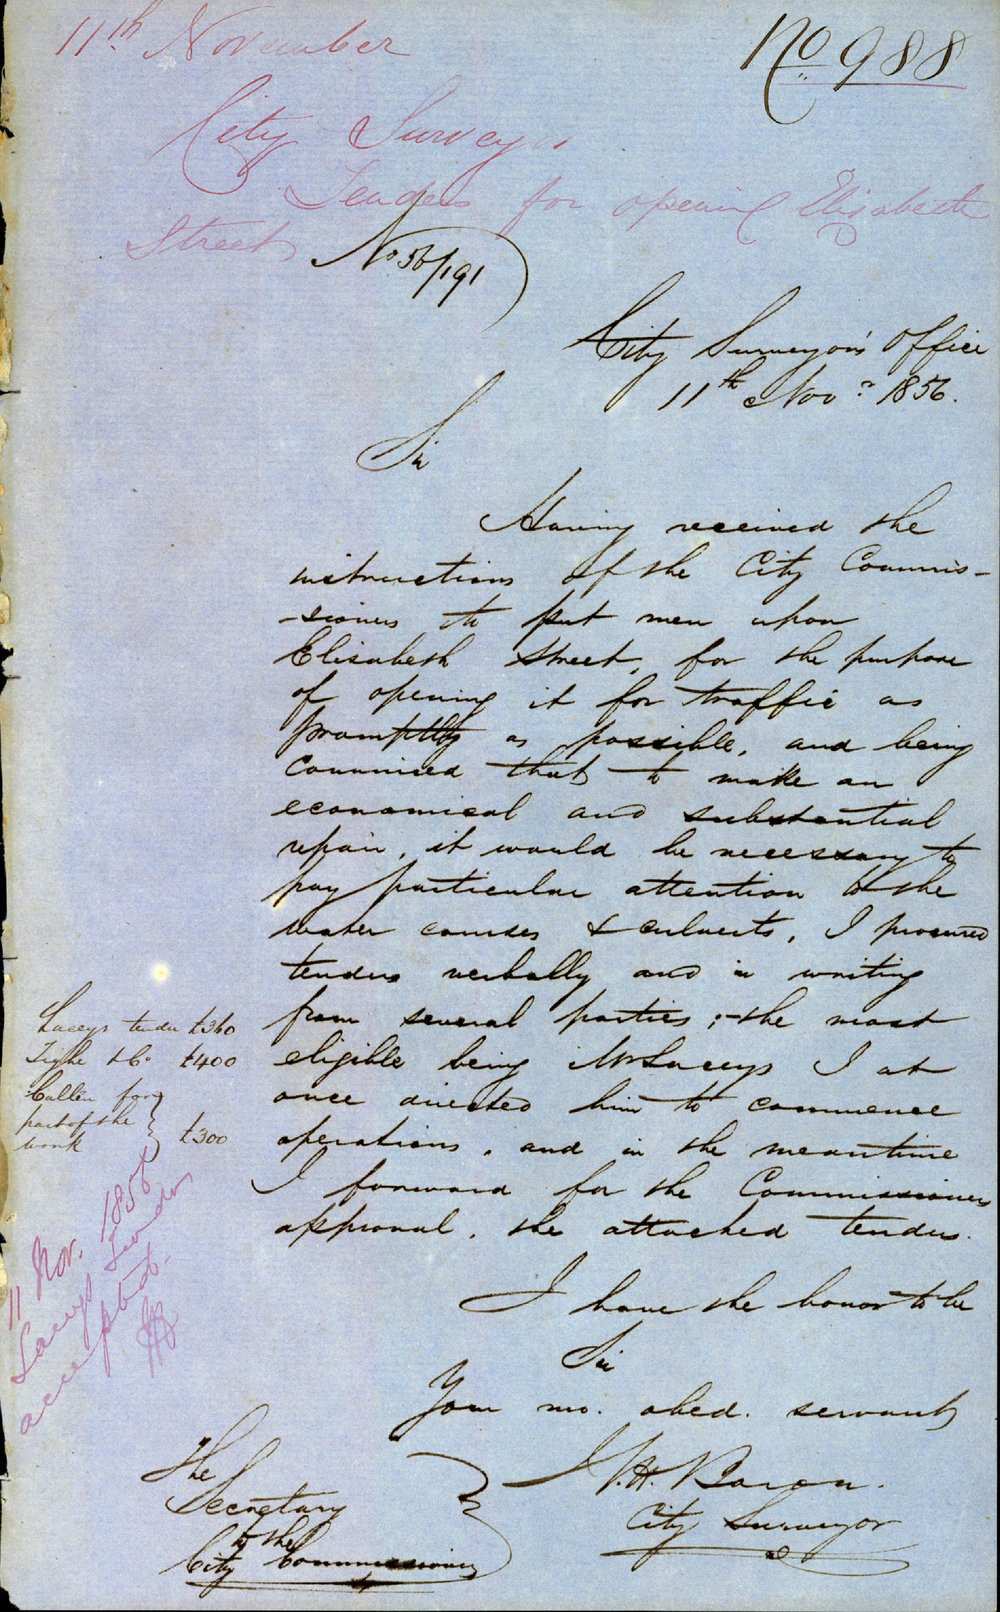 11th November
No 988
City Surveyor
Tenders for opening Elizabeth
Street
No 56/191
City Surveyor's Office
11th Novr 1856.
Sir
Having received the
instructions of the City Commis-
-sioners to put men upon
Elizabeth Street, for the purpose
of opening it for traffic as
promptly as possible, and being
convinced that to make an
economical and substantial
repair, it would be necessary to
pay particular attention to the
water courses & culverts, I procured
tenders verbally and in writing
from several parties; - the most
eligible being Mr Laceys I at
once directed him to commence
operations, and in the meantime
I forward for the Commissioners
approval, the attached tenders.
I have the honor to be
Sir
Your mo. obed. servant
City Surveyor
The
Secretary
to the
City Commissioners
Laceys tender £360
Tighe & Co £400
Cullen for
part of the
work £300
11 Nov. 1856
Laceys Tender
accepted.